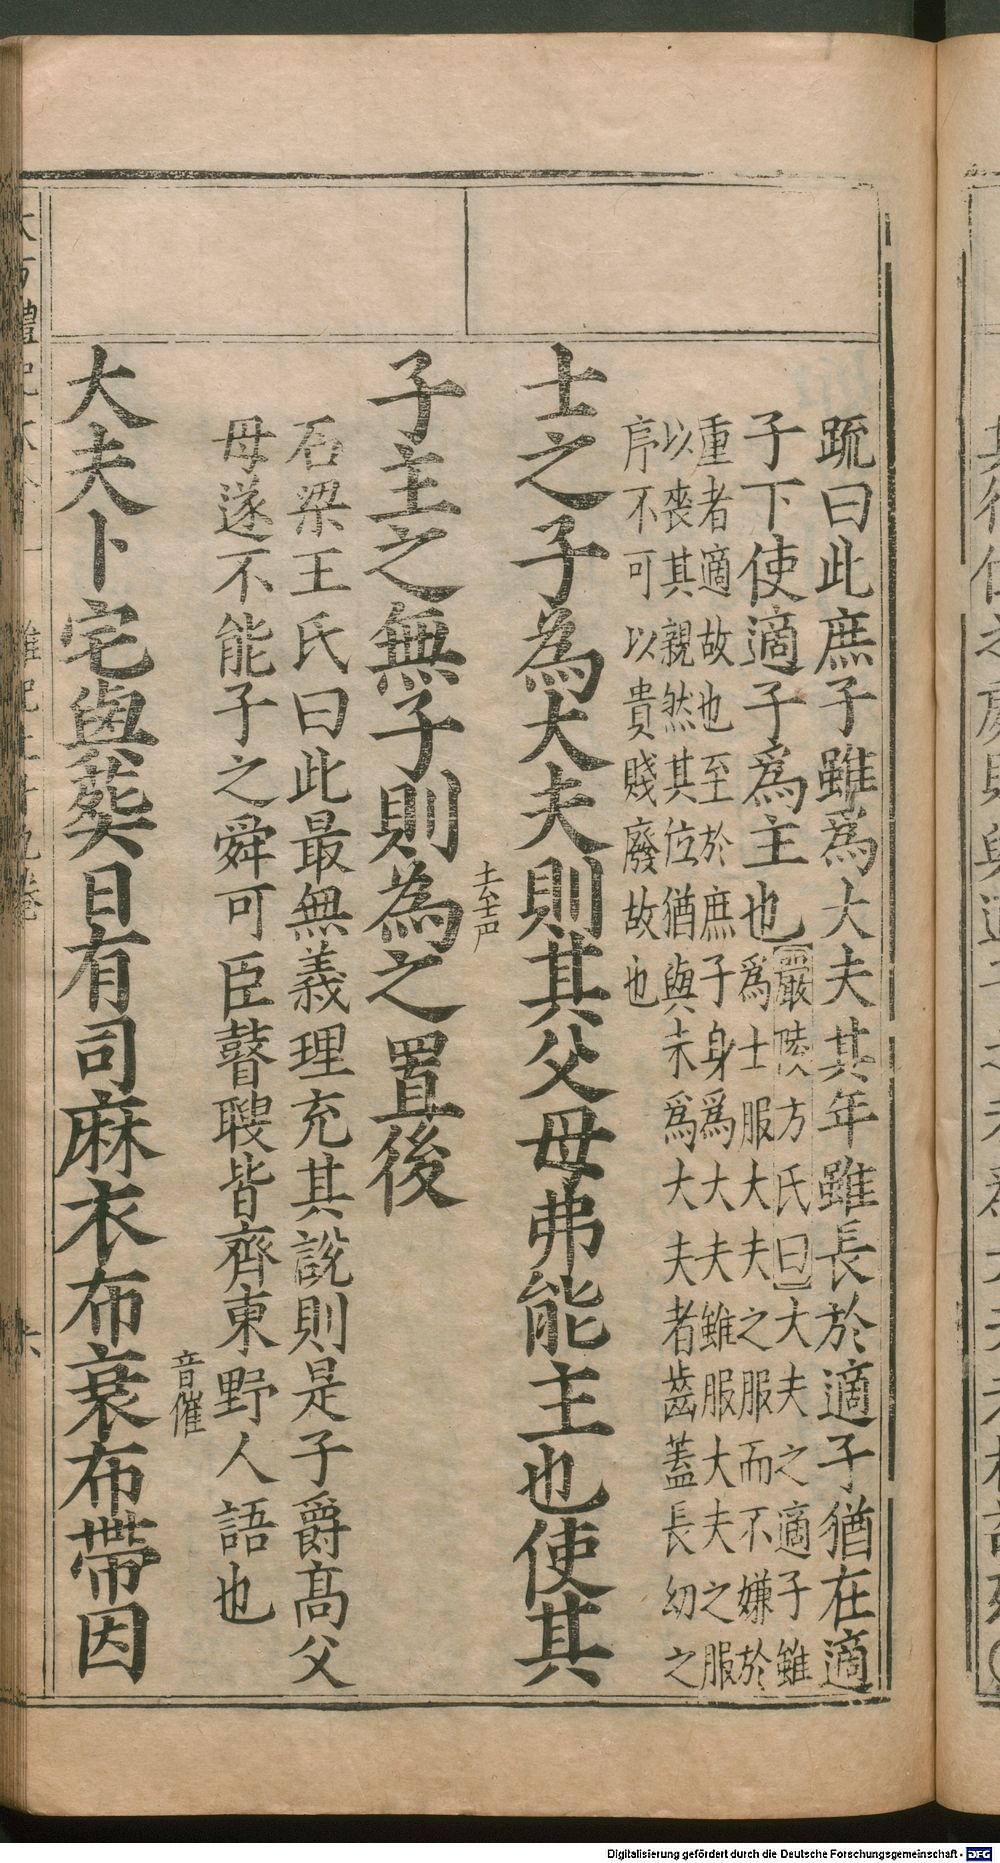 疏曰此庶子雖爲大夫其年雖長於適子猶在適
子下使適子爲主也
嚴陵方氏曰大夫之適子雖
爲士服大夫之服而不嫌於
重者適故也至於庶子身爲大夫雖服大夫之服
以喪其親然其位猶與未爲大夫者齒蓋長幼之
序不可以貴賤廢故也
士之子為大夫則其父母弗能主也使其
子主之無子則為之置後
去聲
石梁王氏曰此最無義理充其說則是子爵高父
母遂不能子之舜可臣瞽瞍皆齊東野人語也
大夫卜宅與葬日有司麻衣布衰布帶因
音催
Digitalisierung gefördert durch die Deutsche Forschungsgemeinschaft - DFG